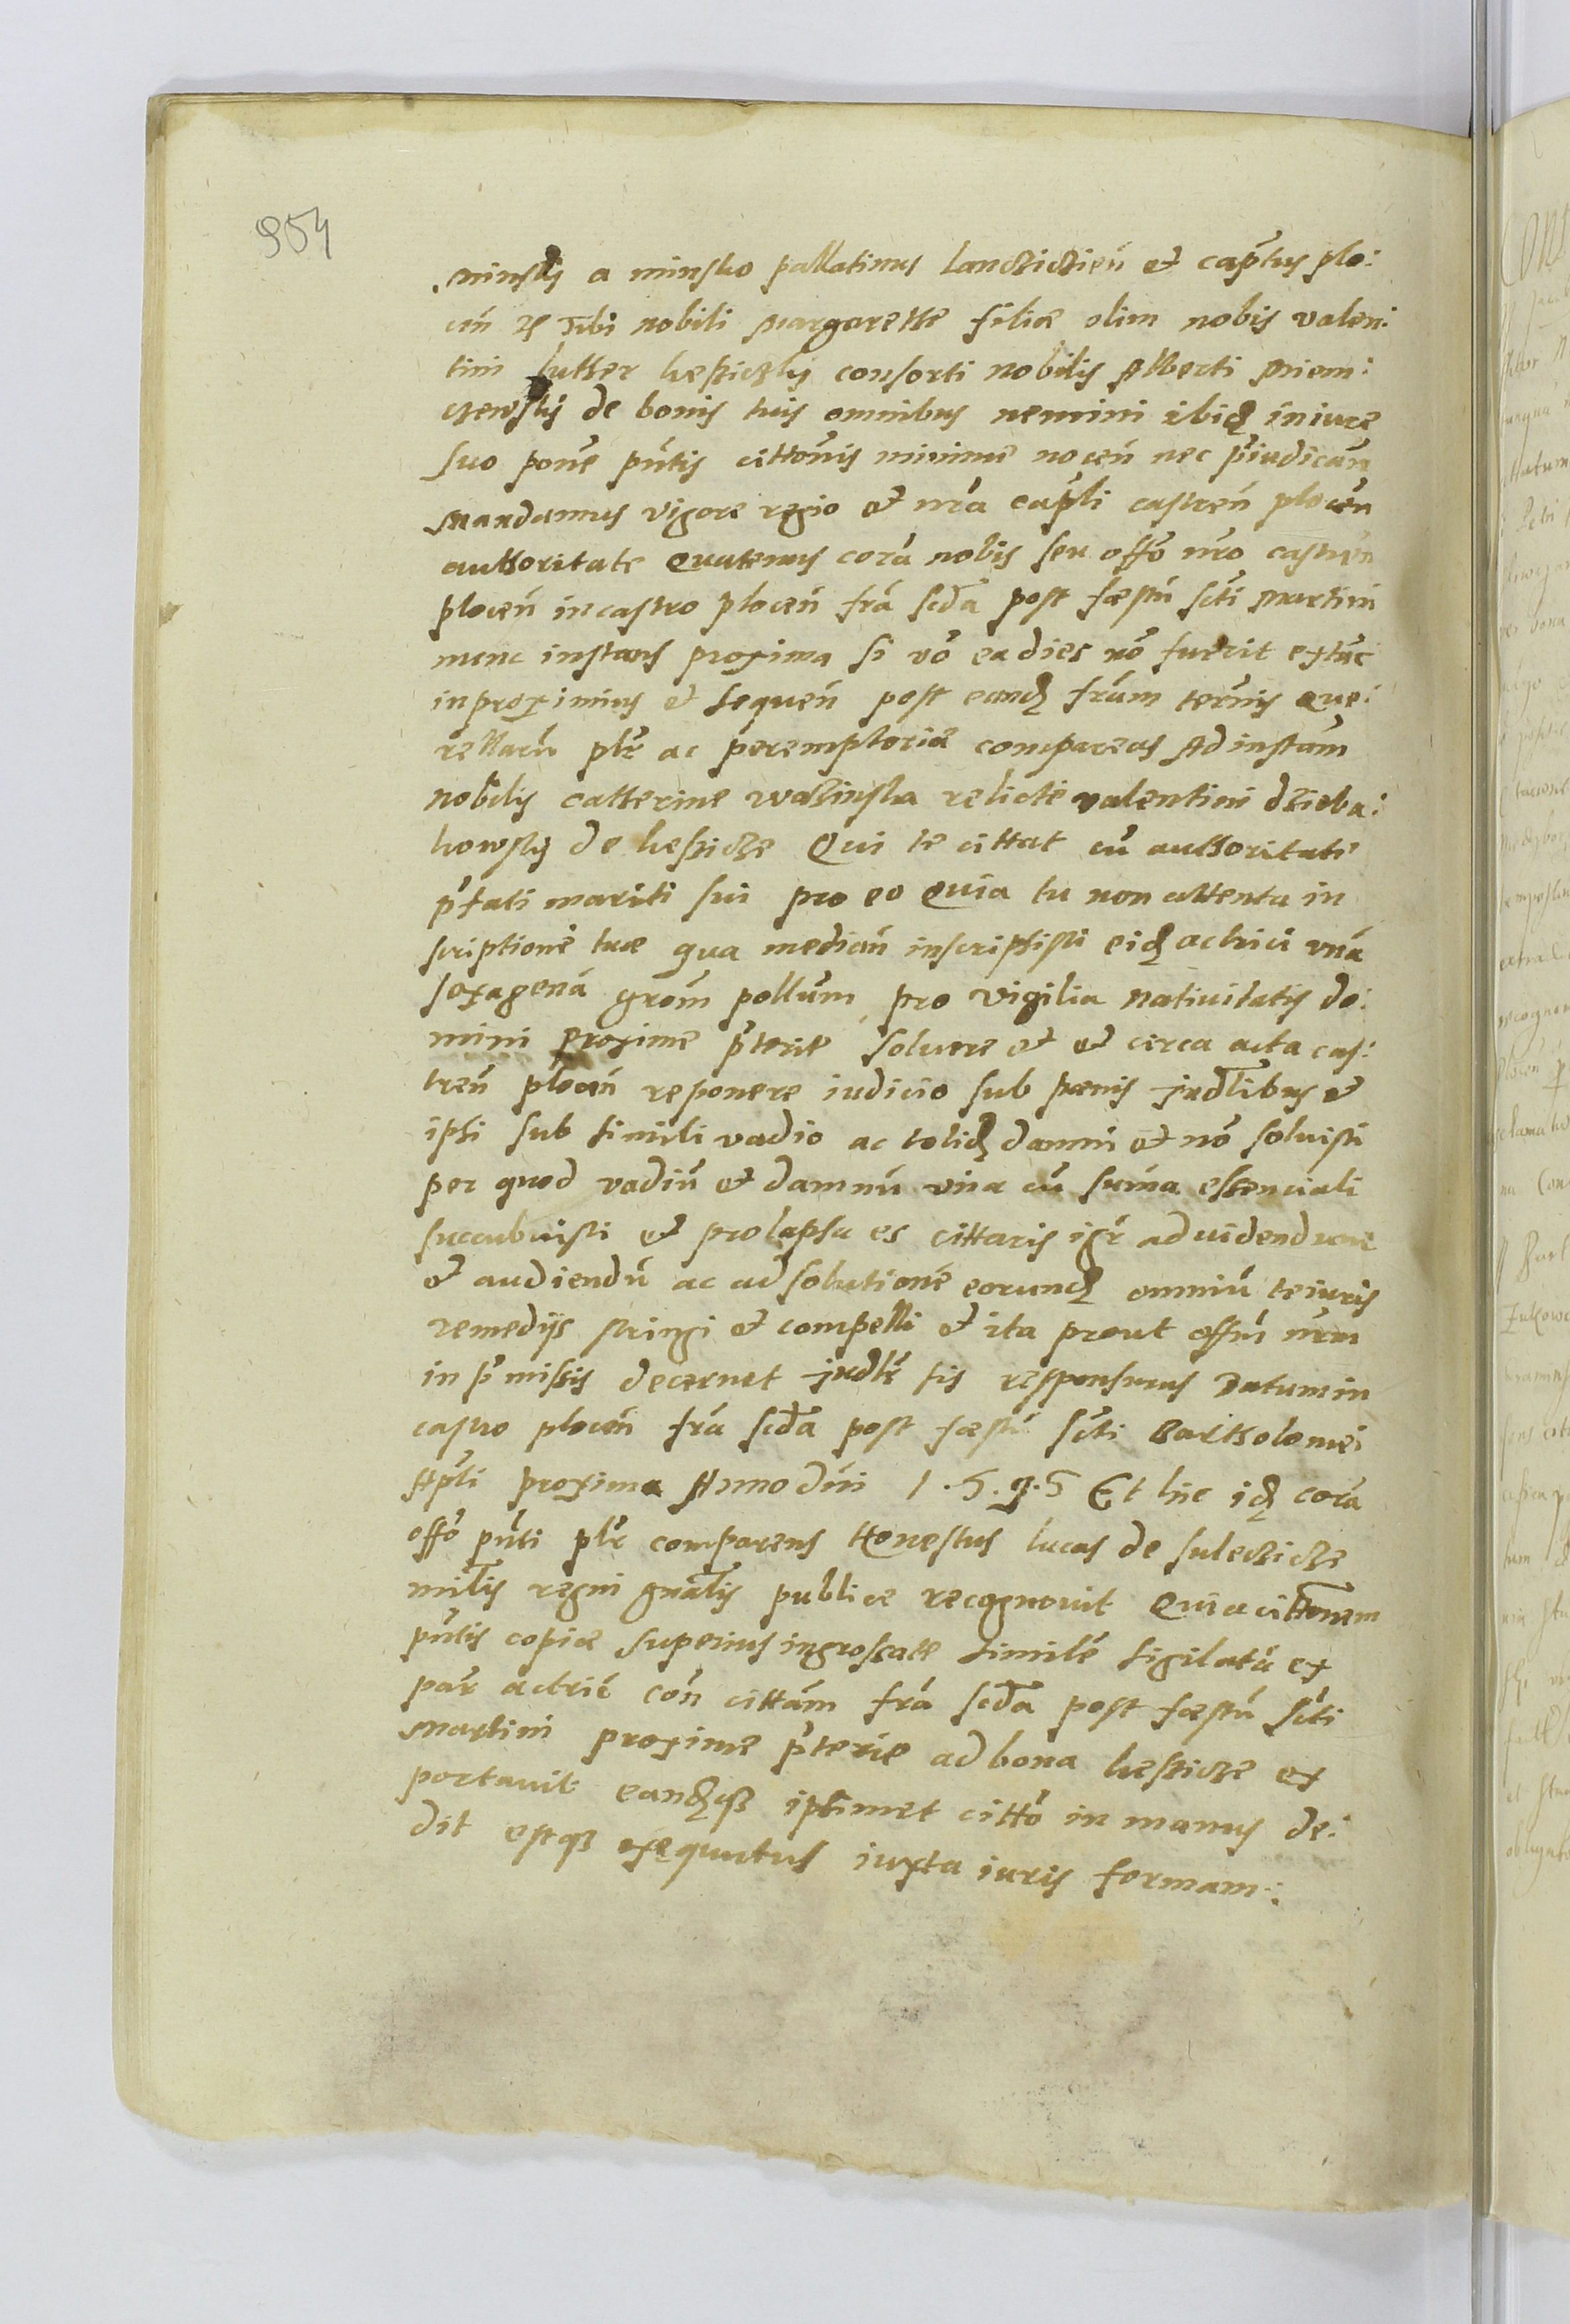 954
Minskj a minsko pallatinus lancziczień et cap̃tus plo:
ceń etc Tibi nobili Margarethe filiæ olim nobis valen:
tini luther kepiczkj consorti nobilis Alberti Niem:
czewskj de bonis tuis omnibus nemini ibidꝫ in iure
suo pone pñtis cittonis minime noceń nec p̃iudicań
Mandamus vigore regio et nra cap̃li castreń ploceń
authoritate Quatenus corã nobis seu offo nro castreń
ploceń in castro ploceń frã scda post fæstũ scti Martini
nunc instans proxima si vo ea dies no fuerit extũc
in proximius et sequeń post eandꝫ frãm termis Que:
rellarũ plr ac peremptoriæ compareas Ad instãm
nobilis catherine relicte valentini dzieba:
kowskj de kepicze Qui te cittat cũ authoritate
p̃fati mariti sui pro eo Quia tu non attenta in
scriptione tuæ qua medicań inscripsisti eidꝫ actrici vnã
sexagenã grom pollum pro vigilia Natiuitatis do:
mini proxime p̃terite soluere et et circa acta cas:
treń ploceń reponere iudicio sub pænis judlibus et
ipsi sub simili vadio ac tolidꝫ damni et no soluisti
per quod vadiũ et damnũ vna cũ suma essenciali
succubuisti et prolapsa es cittaris igr ad videndum
et audiendũ ac ad solutione eorundꝫ omniũ te iuris
remedijs stringi et compelli et ita prout offm nrm
in p̃missis decernet judlr sis responsurus Datum in
castro ploceń frã scda post fæstũ scti Bartholomei
Apli proxima Anno dni 1.5.9.5 Et hic idꝫ corã
offo pñti plr comparens Honestus lucas de suleczicze
milis regni gnalis publice recognouit Quia cittonem
pñtis copiæ superius ingrossate simile sigilatã ex
par actric con cittãm frã scda post fæstũ scti
Martini proxime p̃terie ad bona kepicze ex
portauit eandꝫqꝫ ipsimet citto in manus de:
dit estqꝫ exequutus iuxta iuris formam:.